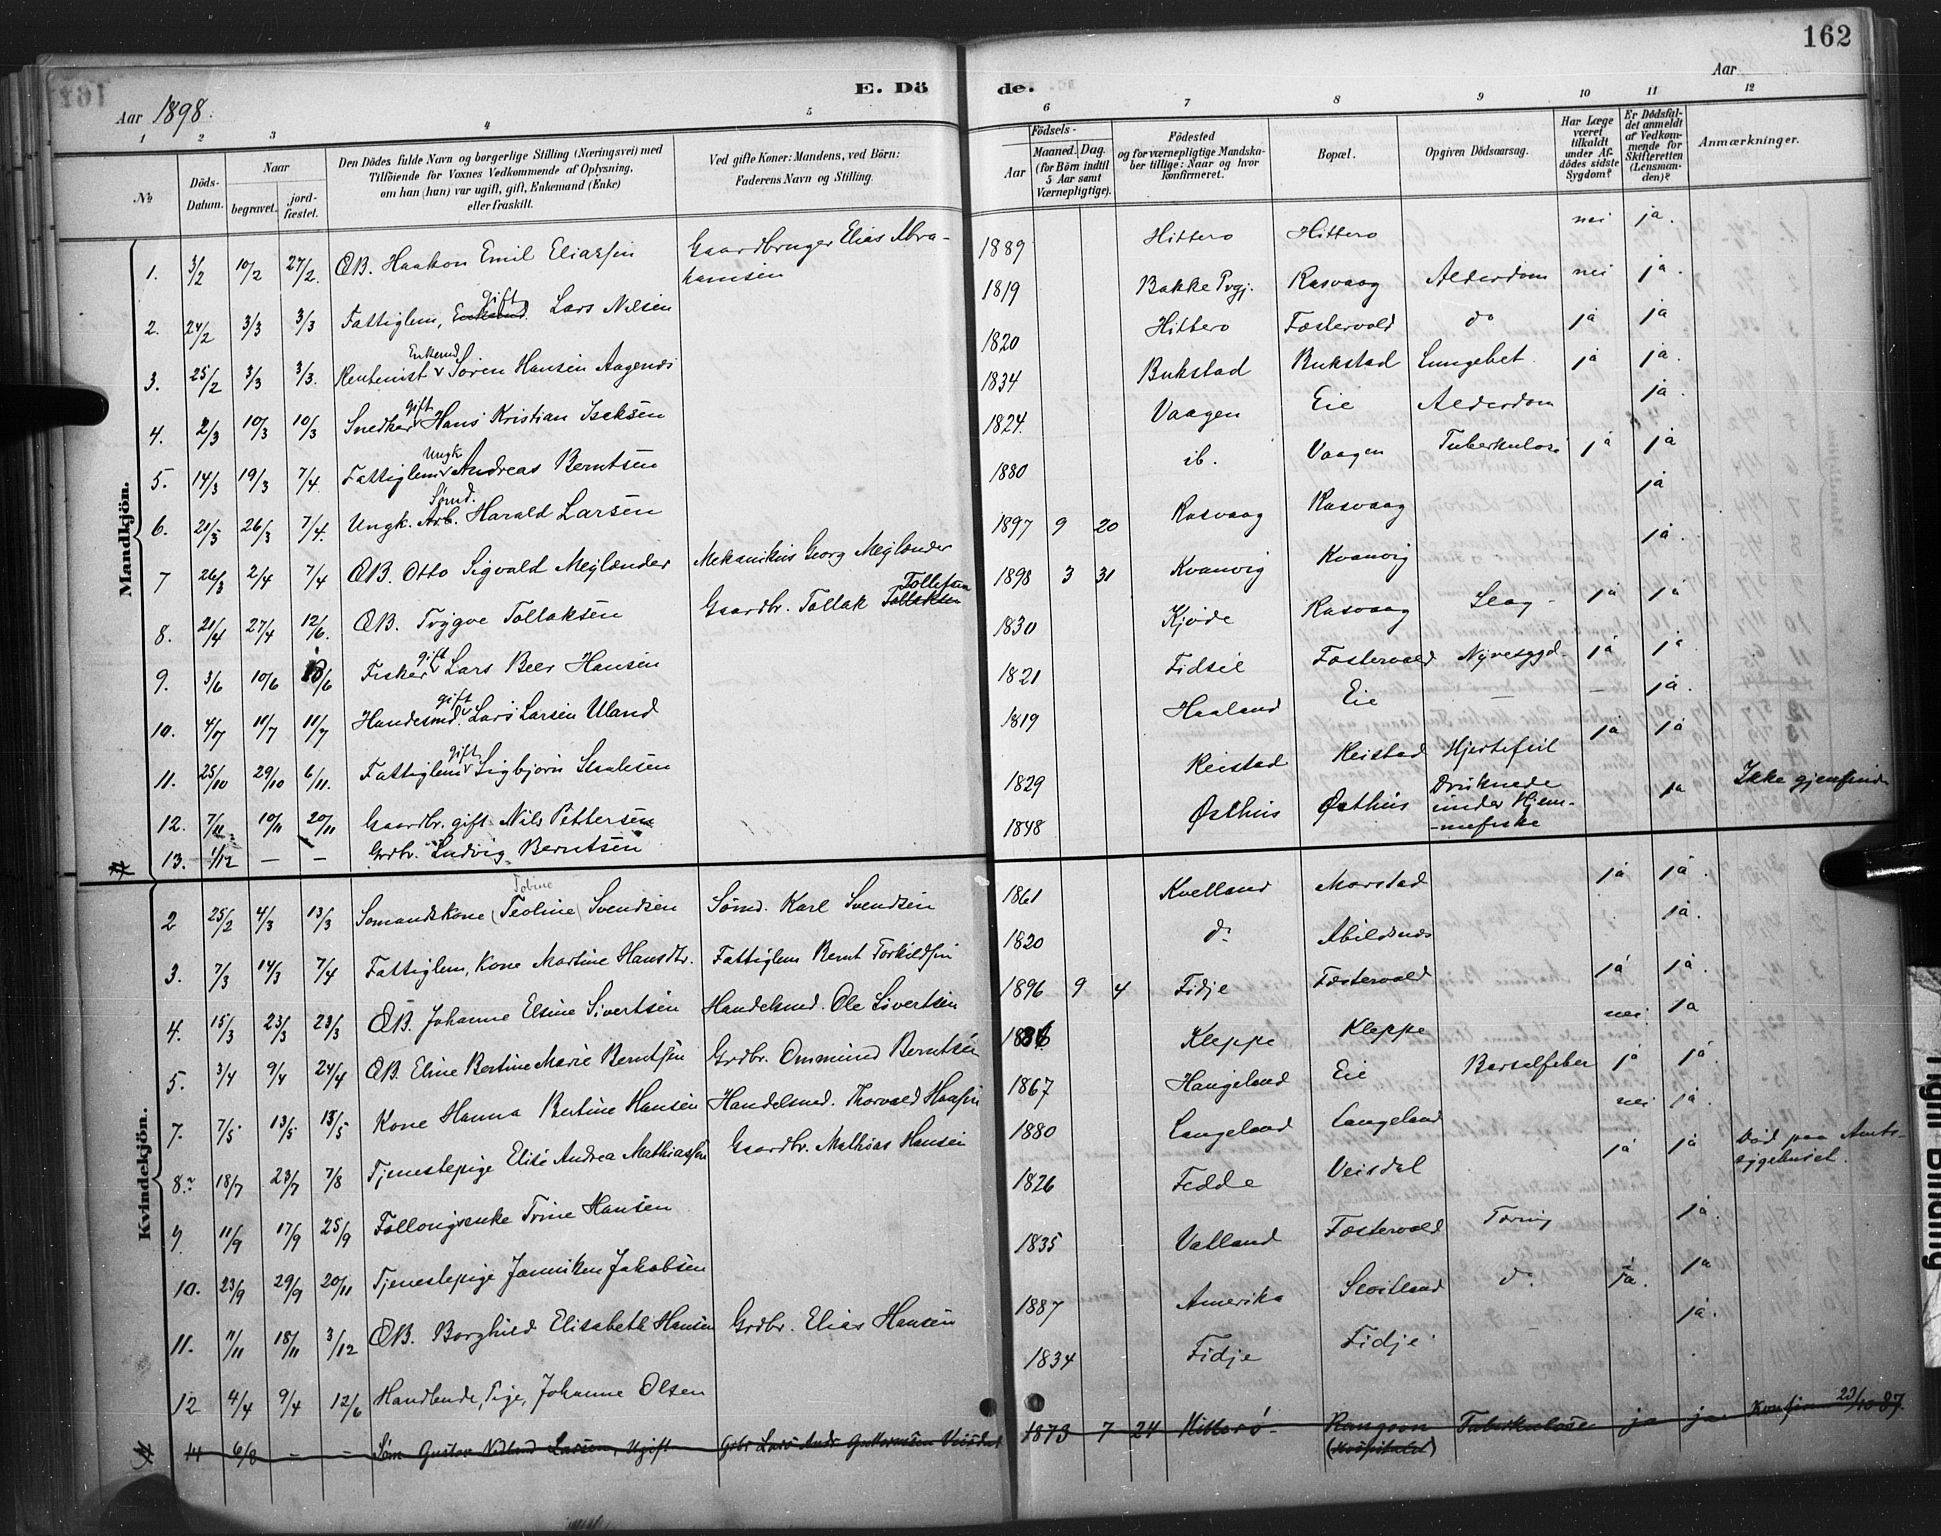 162
Aar 1898.
E. Dö de.
Aar
1 2 3 4 5 6 7 8 9 10 11 12
№
Döds-Datum.
Naar
begravet.
jord-fæstet.
Den Dödes fulde Navn og borgerlige Stilling (Næringsvei) med
Tilföiende for Voxnes Vedkommende af Oplysning,
om han (hun) var ugift, gift, Enkemand (Enke)
eller fraskilt.
Ved gifte Koner: Mandens, ved Börn:
Faderens Navn og Stilling.
Födsels-
Aar
Maaned. Dag.
(for Börn indtil
5 Aar samt
Værnepligtige).
Födested
og for værnepligtige Mandska-
ber tillige: Naar og hvor
konfirmeret.
Bopæl.
Opgiven Dödsaarsag.
Har Læge
været
tilkaldt
under Af-
dödes sidste
Sygdom?
Er Dödsfal-
det anmeldt
af Vedkom-
mende for
Skifteretten
(Lensman-
den)?
Anmærkninger.
Mandkjön.
1. 3/2 10/2 27/2. ÆB. Haakon Emil Eliassen Gaardbruger Elias Abra-
hamsen 1889 Hittero Hittero nei ja.
2. 24/2 3/3 3/3 Fattiglem, gift Lars Nilsen 1819 Bakke Prgj. Rasvaag Alderdom nei ja.
3. 25/2 3/3 3/3. Rentenist Enkemd Sören Hansen Aagenes 1820 Hittero Fostervold do ja ja
4. 2/3 10/3 10/3 Snedker gift Hans Kristian Iseksen 1834 Bukstad Bukstad Lungebet. ja ja.
5. 14/3 19/3 7/4. Fattiglem Ungk Andreas Berntsen 1824. Vaagen Eie Alderdom ja.
6. 21/3 26/3 7/4. Ungk. Sömd. Harald Larsen 1880 ib. Vaagen Tuberkulose ja ja
7 26/3 2/4 7/4 ÆB. Otto Sigvald Mejlænder Mekanikus Georg Mejlænder 1897 9 20 Rasvaag Rasvaag ja
8. 21/4 27/4 12/6. ÆB. Trygve Tollaksen Gaardbr. Tollak Tollefsen 1898 3 31 Kvanvig Kvanvig ja.
9. 3/6 10/6 /6 Fisker gift Lars Beer Hansen 1830 Kjöde Rasvaag Slag - ja ja
10. 4/7 11/7 11/7 Handelsmd. gift Lars Larsen Uland 1821 Fidsel Fostervold Nyresygd. ja ja.
11. 25/10 29/10 6/11. Fattiglem gift Sigbjörn Staalesen 1819 Haaland Eie — — ja.
12. 7/11 10/11 20/11 Gaardbr. gift Nils Pettersen 1829 Reistad Reistad Hjertefeil ja ja
13. 1/12 — — Grdbr. Ludvig Berntsen 1848 Østhus Østhus Druknede
under Hjem-
mefiske ja Ikke gjenfunden
Kvindekjön.
2 25/2 4/3 13/3 Sömandskone (Teoline) Tobine Svendsen Sömd. Karl Svendsen 1861 Kvelland Morstad ja ja.
3. 7/3 14/3 7/4 Fattiglem, Kone Martine Hansdtr. Fattiglem Bernt Torkildsen 1820 do Abildsnes ja.
4. 15/3 23/3 23/3 ÆB. Johanne Elsine Sivertsen Handelsmd. Ole Sivertsen 1896 9 4 Fidje Fostervold ja ja.
5. 3/4 9/4 24/4 ÆB. Eline Bertine Marie Berntsen Grdbr. Ommund Berntsen 1886 Kleppe Kleppe nei ja
7. 7/5 13/5 13/5 Kone Hanna Bertine Hansen Handelsmd. Thorvald Hansen 1867 Haugeland Eie Barselfeber ja ja.
8. 18/7 23/7 7/8 Tjenestepige Elise Andrea Mathiassen Gaardbr. Mathias Hansen 1880 Langeland Langeland nei ja.
9 11/9 17/9 25/9 Follougsenke Trine Hansen 1826 Fedde Veisdal ja ja Död paa Amts-
sygehuset.
10. 23/9 29/9 20/11 Tjenestepige Janniken Jakobsen 1835 Vatland Fostervold Tæring ja.
11. 11/11 18/11 3/12 ÆB. Borghild Elisabeth Hansen Grdbr. Elias Hansen 1887 Amerika do ja. ja
12 4/4 9/4 12/6 Pige, Johanne Olsen 1834 Fidje Fidje ja.
14 6/8 — — Söm Gustav Nidland Larsen, Ugift 1873 7 24 Hitterö Rangoon
(Hospitalet) Tuberkulose ja ja Konfirm 23/10 87.